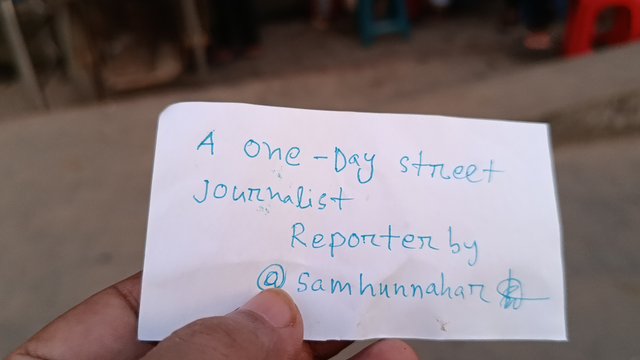 A one-Day street
Journalist
Reporter by
@samhunnahar